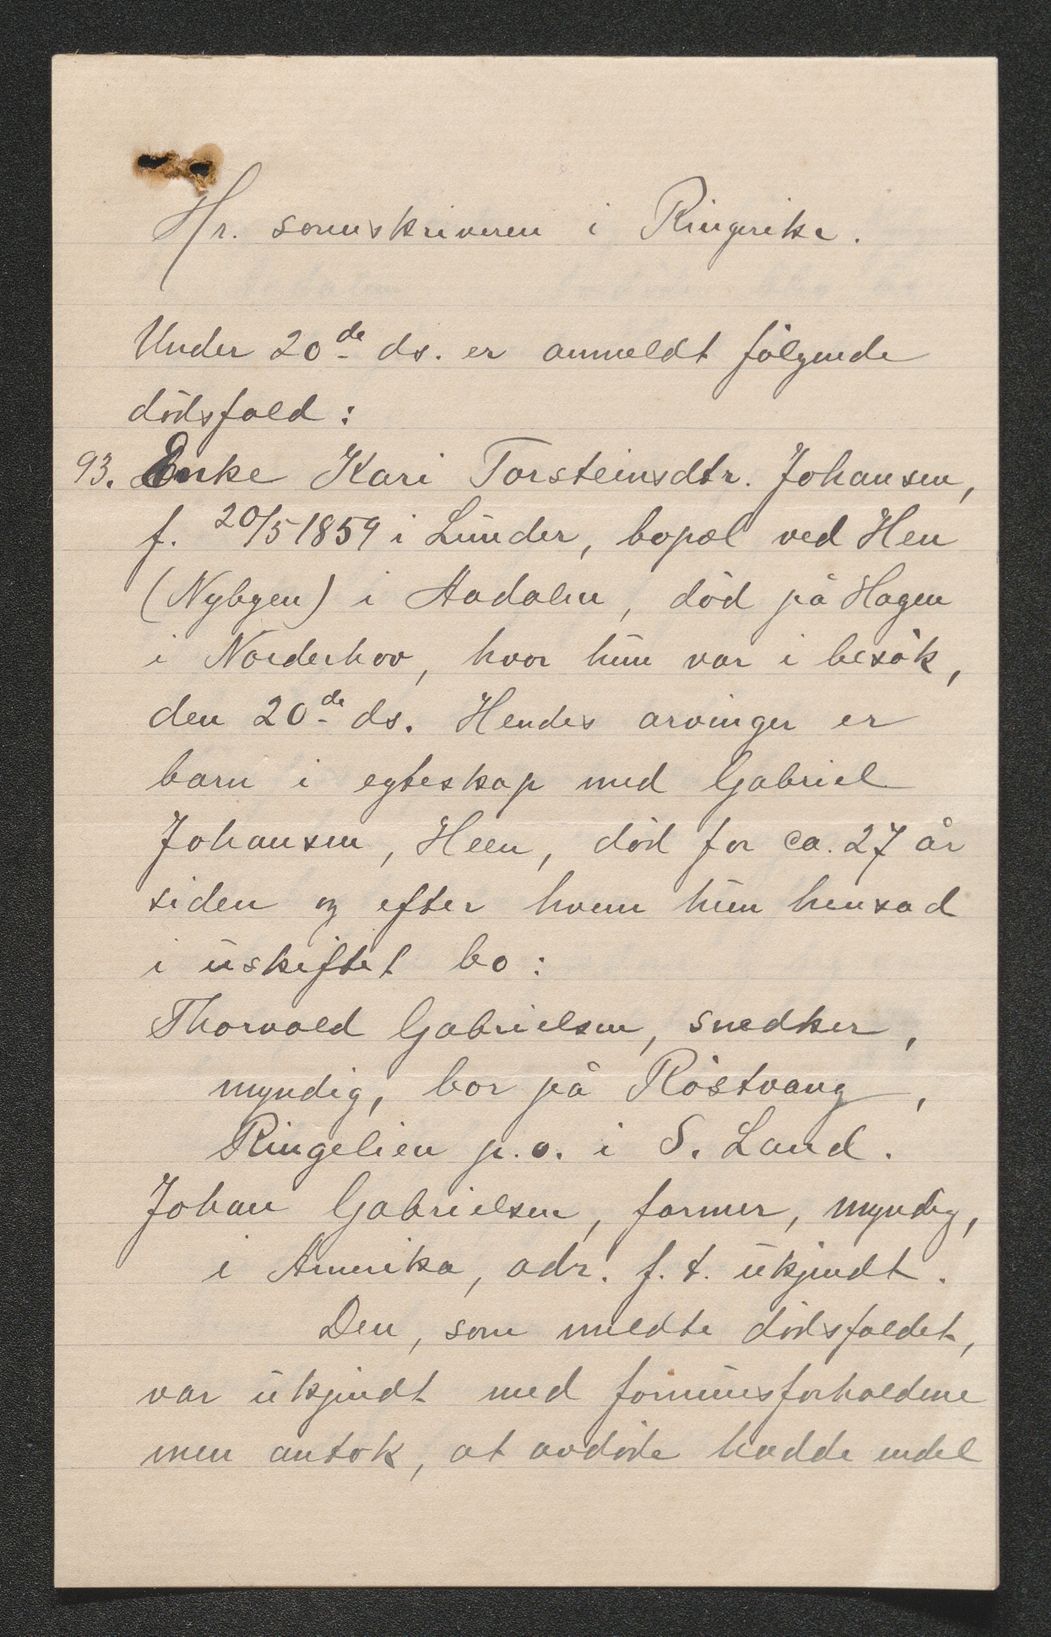 Hr. sorenskriveren i Ringerike.
Under 20de ds. er anmeldt følgende
dødsfald:
93. Enke Kari Torsteinsdtr. Johansen,
f. 20/5 1859 i Lunder, bopæl ved Hen
(Nybyen) i Aadalen, död på Hagen
i Norderhov, hvor hun var i besøk,
den 20de ds. Hendes arvinger er
barn i egteskap med Gabriel
Johansen, Heen, död for ca. 27 år
siden og efter hvem hun hensad
i uskiftet bo:
Thorvald Gabrielsen, snedker,
myndig, bor på Röstvang,
Ringelien p.o. i S. Land.
Johan Gabrielsen, farmer, myndig,
i Amerika, adr. f. t. ukjendt.
Den, som meldte dödsfaldet,
var ukjendt med formuesforholdene
men antok, at avdöde hadde endel